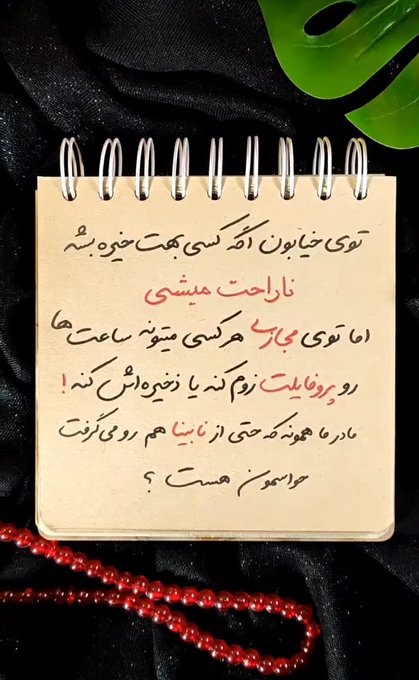 توی خیابون اگه کسی بهت خیره بشه
ناراحت میشی
اما توی مجازی هر کسی میتونه ساعت ها
رو پروفایلت زوم کنه یا ذخیره اش کنه!
مادر ما همونه که حتی از نابینا هم رو می گرفت
حواسمون هست ؟